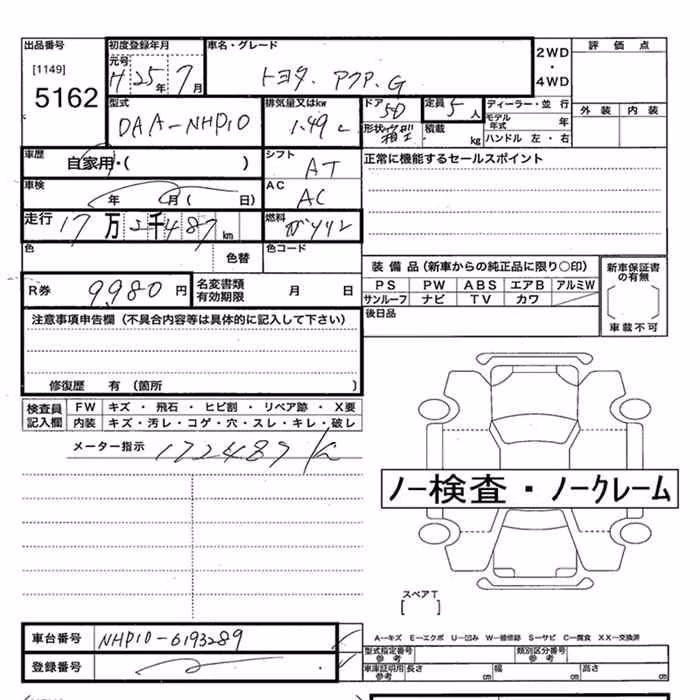 出品番号 初度登録年月 車名・グレード 2WD ・ 4WD 評価点
[1149] 元号
5162 H25年7月 トヨタ. アクア. G
型式 排気量又はkw ドア 5D 定員 5人 ディーラー・並行 外装 内装
DAA-NHP10 1.49L 形状 箱型 積載 kg モデル年式 年
ハンドル 左・右
車歴 自家用・( ) シフト AT 正常に機能するセールスポイント
車検 年 月( 日) AC AC
走行 17万2千487km 燃料 ガソリン
色 色替 色コード
装備品(新車からの純正品に限り〇印) 新車保証書の有無
R券 9980円 名変書類有効期限 月 日 PS PW ABS エアB アルミW
サンルーフ ナビ TV カワ
車載不可
注意事項申告欄(不具合内容等は具体的に記入して下さい) 後日品
修復歴 有 (箇所 )
検査員記入欄 FW キズ・飛石・ヒビ割・リペア跡・X要
内装 キズ・汚レ・コゲ・穴・スレ・キレ・破レ
メーター指示 172487K
ノー検査・ノークレーム
スペアT
[ ]
車台番号 NHP10-6193289 A-キズ E-エクボ U-凹み W-補修跡 S-サビ C-腐食 XX-交換済
型式指定番号 参考 類別区分番号 参考
登録番号 車庫証明用 参考 長さ cm 幅 cm 高さ cm